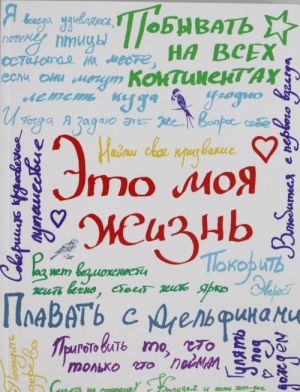 Я всегда удивляюсь,
почему птицы
остаются на месте,
если они могут
лететь куда угодно
И тогда я задаю этот же вопрос себе
Побывать
на всех
континентах
Влюбиться с первого взгляда
Найти свое призвание
Совершить кругосветное
путешествие
Это моя
жизнь
Раз нет возможности
жить вечно, стоит жить ярко
Покорить
Эверест
Плавать с дельфинами
дерево
Приготовить то, что
только что поймал
Гулять
под
дождем